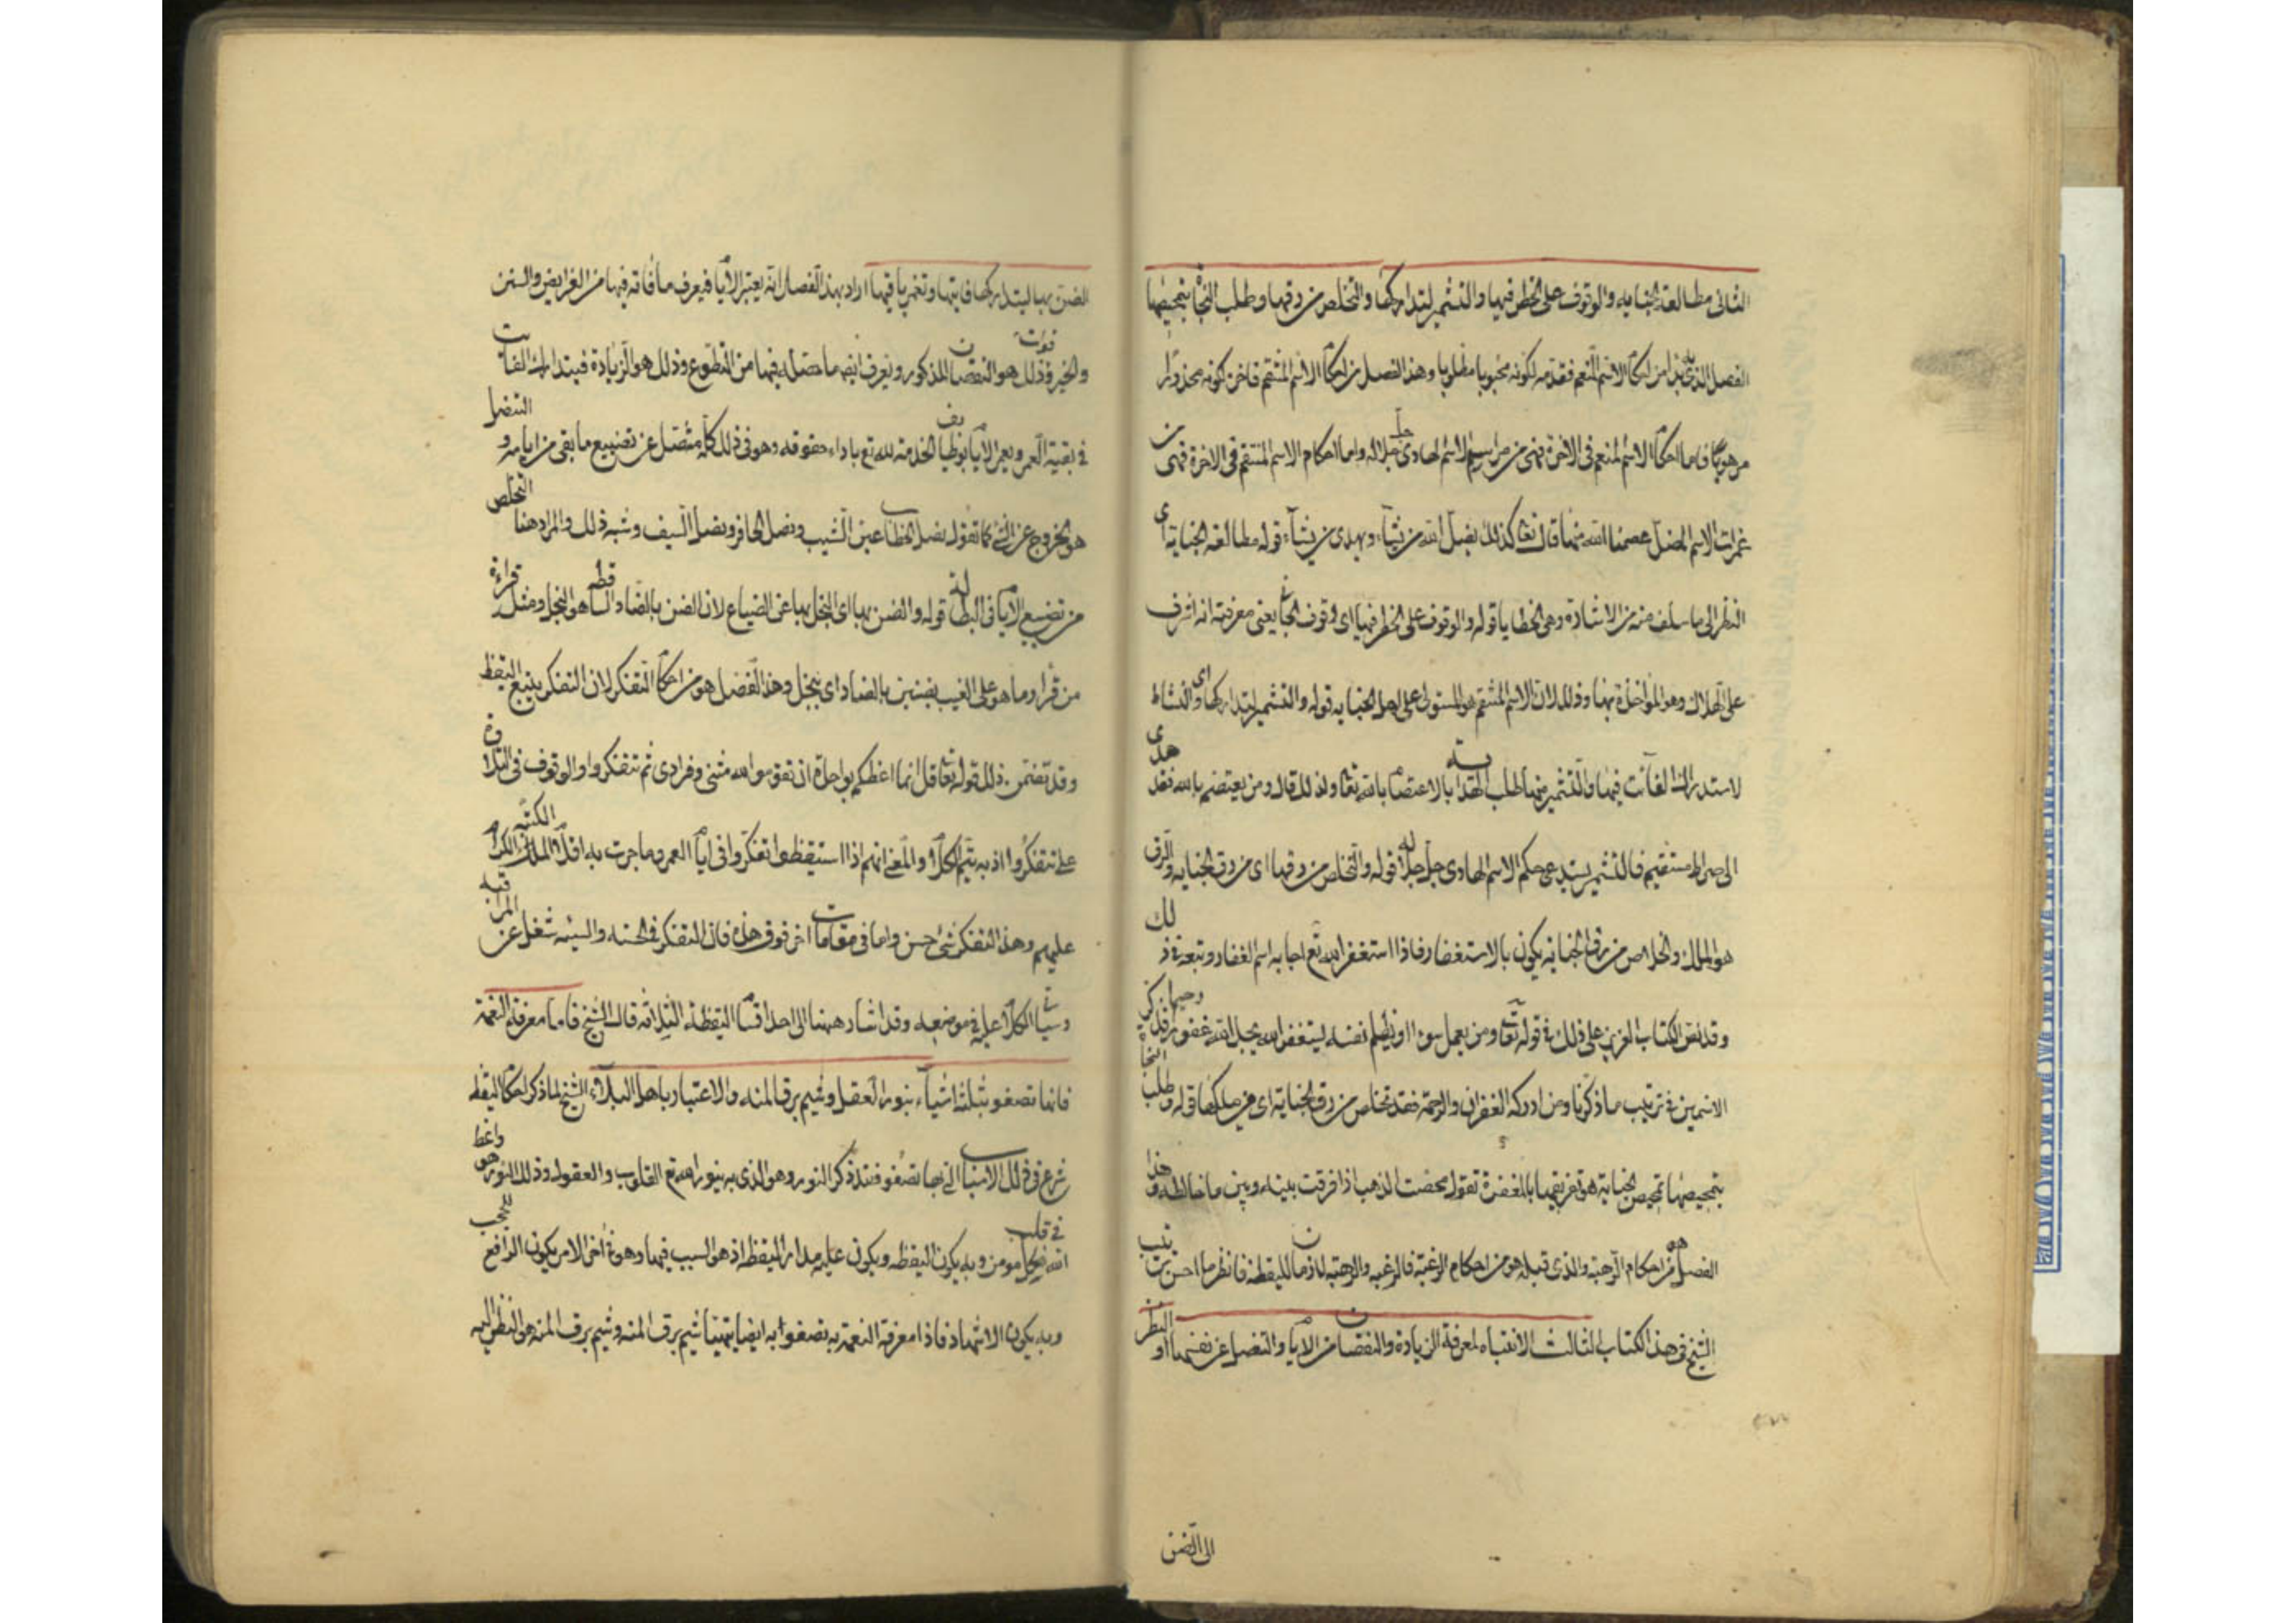 الثانى مطالعة الجنايه والوقوف على الخطر فيها والتشمير لتداركها والتخلص من رقها وطلب النجاة بتمحيصها
الفصل الذى قبل هذا من احكام الاسم المنعم فقدمه لكونه محبوبا مطلوبا وهذا الفصل من احكام الاسم المنتقم فاخر كونه محذورا
مرهوبا فاما احكام الاسم المنعم فى الاخرة فهى من مراسم الاسم الهادى جل جلاله واما احكام الاسم المنتقم فى الاخرة فهى من
ثمرات الاسم المضل عصمنا الله منها قال تعا كذلك يضل الله من يشآء ويهدى من يشآء قوله مطالعة الجناية اى
النظر الى ما سلف منه من الاشارة وهى الخطايا قوله والوقوف على الخطر فيها اى وقوف الجانى يعنى معرفته انه اشرف
على الهلاك وهو المواخذة بها وذلك لان الاسم المنتقم هو المستولى على اهل الجنايه قوله والتشمير لتداركها اى والنشاط
لاستدراك الفآئت فيها والتشمير منها طلب الهداية بالاعتصام بالله تعا ولذلك قال ومن يعتصم بالله فقد هدى
الى صراط مستقيم فالتشمير يستدعى حكم الاسم الهادى جل جلاله قوله والتخلص من رقها اى من رق الجنايه والرق
هو الملك والخلاص من رق الجنايه يكون بالاستغفار فاذا استغفر الله تع اجابه اسم الغفار وتبعة ذلك
وقد نص الكتاب العزيز على ذلك فى قوله تعا ومن يعمل سوءا او يظلم نفسه ثم يستغفر الله يجد الله غفورا رحيما فذكر
الاسمين فى ترتيب ما ذكرنا ومن ادركه الغفران والرحمة فقد تخلص من رق الجناية اى من ملكها قوله وطلب النجاة
بتمحيصها تمحيص الجناية هو تفريقها بالمغفرة تقول محصت الذهب اذا فرقت بينه وبين ما خالطه وهذا
الفصل هو من احكام الرهبة والذى قبله هو من احكام الرغبة فالرغبه والرهبة لازمان لليقظة فانظر ما احسن ترتيب
الشيخ فى هذا الكتاب الثالث الانتباه لمعرفة الزيادة والنقصان من الايام والتنصل عن تضييعها والنظر
الى الضن
الضن بها ليتدارك فايتها وتعمر باقيها اراد بهذا الفصل انه يعتبر الايام فيعرف ما فاته فيها من الفرايض والسنن
والخير وفوت ذلك هو النقصان المذكور ويعرف ايضا ما حصل له فيها من التطوع وذلك هو الزيادة فيتدارك الفايت
فى بقية العمر ويعمر الايام بوظايف الخدمة لله تع باداء حقوقه وهو فى ذلك كله متنصل عن تضييع ما بقى من ايامه والتنصل
هو الخروج عن الشى كما تقول نصل الخضاب عن الشيب ونصل الحافر ونصل السيف وشبه ذلك والمراد هنا التخلص
من تضييع الايام فى البطالة قوله والضن بها اى البخل بها عن الضياع لان الضن بالضاد الساقطه هو البخل ومثله قراءة
من قرا وما هو على الغيب بضنين بالضاد اى ببخيل وهذا الفصل هو من احكام التفكر لان التفكر يتبع اليقظة
وقد تضمن ذلك قوله تعا قل انما اعظكم بواحدة ان تقوموا لله مثنى وفرادى ثم تتفكروا والوقوف فى التلاوة
على تتفكروا اذ به يتم الكلام والمعنى انهم اذا استيقظوا تفكروا فى ايام العمر وما جرت به اقلام الملائكة الكرام الكتبه
عليهم وهذا التفكر شى حسن واما فى مقامات اخر فوق هذه فان التفكر فى الحسنه والسيئه شغل عن المراقبه
وسياتى الكلام عليه فى موضعه وقد اشار ههنا الى احد اقسام اليقظة الثلاثه قال الشيخ فاما معرفة النعمة
فانها تصفو بثلثة اشيآء بنور العقل وشيم برق المنه والاعتبار باهل البلآء الشيخ لما ذكر احكام اليقظه
شرع فى ذكر الاسباب التى بها تصفو فذكر النور وهو الذى به ينور الله تع القلوب والعقول وذلك النور هو واعظ
الله فى قلب كل مومن وبه يكون اليقظه ويكون عليه مدار اليقظه اذ هو السبب فيها وهو فى اخر الامر يكون الرافع للحجب
وبه يكون الاشهاد فاذا معرفة النعمة به تصفوا به ايضا يتهيا شيم برق المنه وشيم برق المنه هو النظر اليه